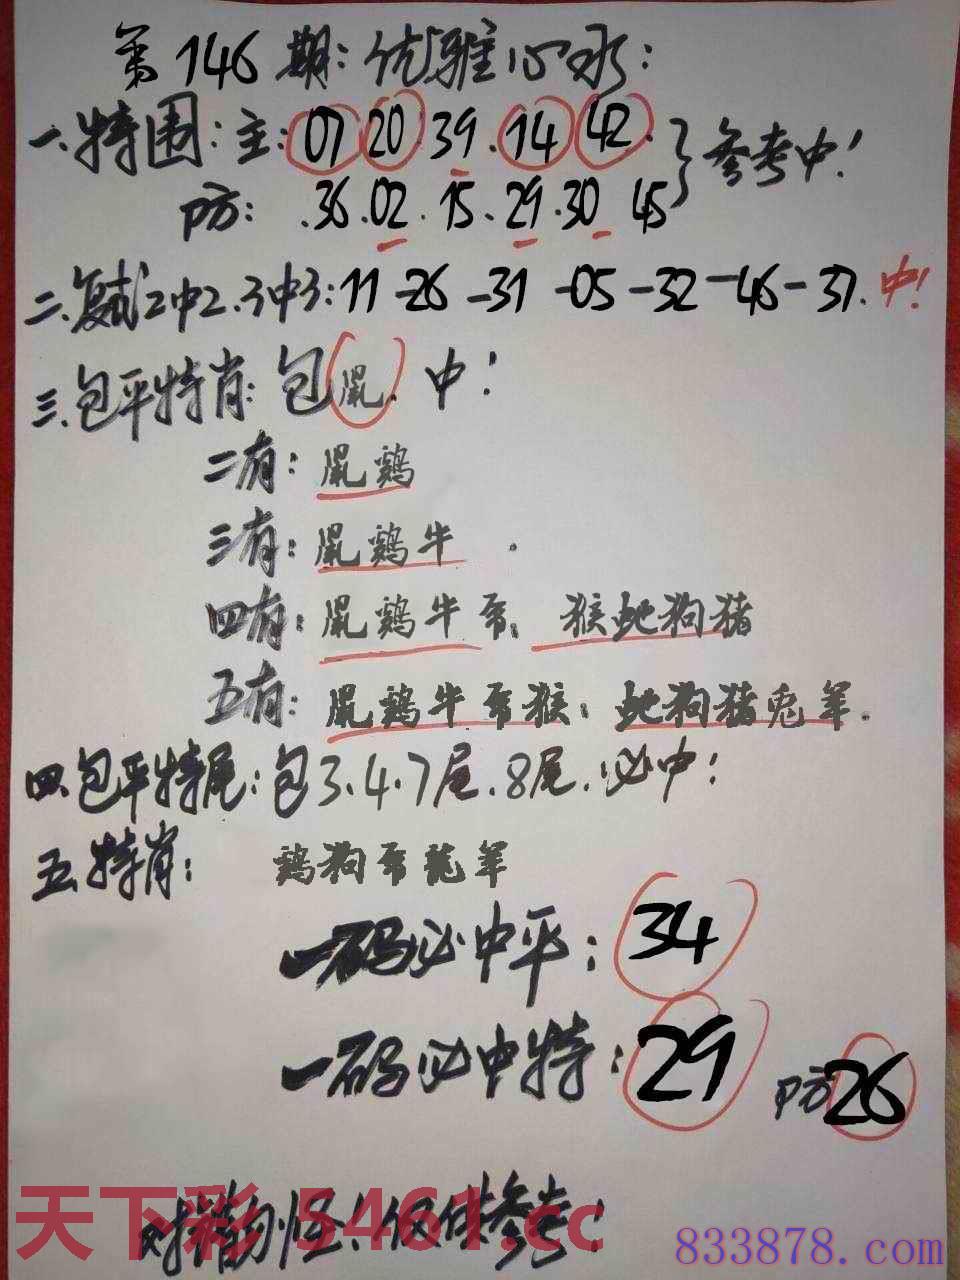 第146期:优雅心水:
一.特围:主:07 20 39.14 42.
防:.36.02.15.29.30 45
}参考中!
二.复试2中2.3中3:11-26-31-05-32-46-37.中!
三.包平特肖:包鼠.中!
二有:鼠鸡
三有:鼠鸡牛.
四有:鼠鸡牛马;猴蛇狗猪
五有:鼠鸡牛马猴;蛇狗猪兔羊.
四.包平特尾:包3.4.7尾.8尾.必中!
五.特肖:鸡狗马龙羊
一码必中平:34
一码必中特:29 防26
对错勿怪!仅供参考!
天下彩 5461.cc
833878.com